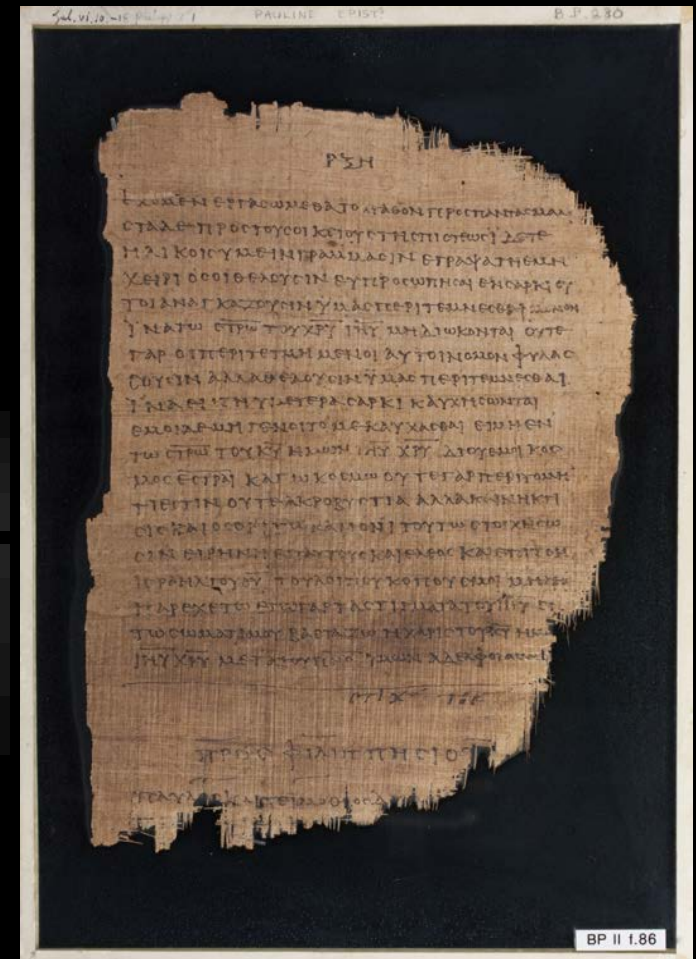 PAULINE EPIST
B.P. 280
ΡΞΗ
ΕΧΟΜΕΝ ΕΡΓΑCΩΜΕΘΑ ΤΟ ΑΓΑΘΟΝ ΠΡΟC ΠΑΝΤΑC ΜΑΛΙ
CΤΑ ΔΕ ΠΡΟC ΤΟΥC ΟΙΚΕΙΟΥC ΤΗC ΠΙCΤΕΩC ΙΔΕΤΕ
ΗΛΙΚΟΙC ΥΜΕΙΝ ΓΡΑΜΜΑCΙΝ ΕΓΡΑΨΑ ΤΗ ΕΜΗ
ΧΕΙΡΙ ΟCΟΙ ΘΕΛΟΥCΙΝ ΕΥΠΡΟCΩΠΗCΑΙ ΕΝ CΑΡΚΙ ΟΥ
ΤΟΙ ΑΝΑΓΚΑΖΟΥCΙΝ ΥΜΑC ΠΕΡΙΤΕΜΝΕCΘΑΙ ΜΟΝΟΝ
ΙΝΑ ΤΩ CΤΡΩ ΤΟΥ ΧΡΥ ΙΗΥ ΜΗ ΔΙΩΚΟΝΤΑΙ ΟΥΤΕ
ΓΑΡ ΟΙ ΠΕΡΙΤΕΤΜΗΜΕΝΟΙ ΑΥΤΟΙ ΝΟΜΟΝ ΦΥΛΑC
CΟΥCΙΝ ΑΛΛΑ ΘΕΛΟΥCΙΝ ΥΜΑC ΠΕΡΙΤΕΜΝΕCΘΑΙ
ΙΝΑ ΕΝ ΤΗ ΥΜΕΤΕΡΑ CΑΡΚΙ ΚΑΥΧΗCΩΝΤΑΙ
ΕΜΟΙ ΔΕ ΜΗ ΓΕΝΟΙΤΟ ΜΕ ΚΑΥΧΑCΘΑΙ ΕΙ ΜΗ ΕΝ
ΤΩ CΤΡΩ ΤΟΥ ΚΥ ΗΜΩΝ ΙΗΥ ΧΡΥ ΔΙ ΟΥ ΕΜΟΙ ΚΟC
ΜΟC ΕCΤΡΑΙ ΚΑΓΩ ΚΟCΜΩ ΟΥΤΕ ΓΑΡ ΠΕΡΙΤΟΜΗ
ΤΙ ΕCΤΙΝ ΟΥΤΕ ΑΚΡΟΒΥCΤΙΑ ΑΛΛΑ ΚΑΙΝΗ ΚΤΙ
CΙC ΚΑΙ ΟCΟΙ ΤΩ ΚΑΝΟΝΙ ΤΟΥΤΩ CΤΟΙΧΗCΩ
CΙΝ ΕΙΡΗΝΗ ΕΠ ΑΥΤΟΥC ΚΑΙ ΕΛΕΟC ΚΑΙ ΕΠΙ ΤΟΝ
ΙCΡΑΗΛ ΤΟΥ ΘΥ ΤΟΥ ΛΟΙΠΟΥ ΚΟΠΟΥC ΜΟΙ ΜΗΔΕΙC
ΠΑΡΕΧΕΤΩ ΕΓΩ ΓΑΡ ΤΑ CΤΙΓΜΑΤΑ ΤΟΥ ΙΗΥ ΕΝ
ΤΩ CΩΜΑΤΙ ΜΟΥ ΒΑCΤΑΖΩ Η ΧΑΡΙC ΤΟΥ ΚΥ ΗΜΩΝ
ΙΗΥ ΧΡΥ ΜΕΤΑ ΤΟΥ ΠΝC ΥΜΩΝ ΑΔΕΛΦΟΙ ΑΜΗΝ
CΤΙΧ ΤΟΕ
ΠΡΟC ΦΙΛΙΠΠΗCΙΟΥC
ΠΑΥΛΟC ΚΑΙ ΤΕΙΜΟΘΕΟC
BP II f.86